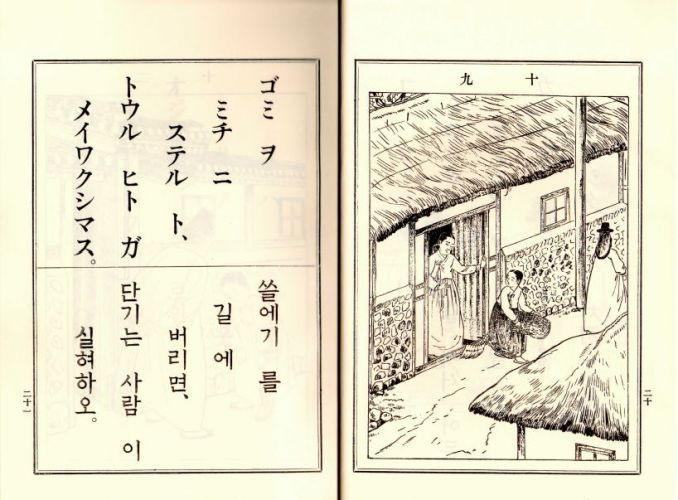 十九
二十
ゴミ ヲ
ミチ ニ
ステル ト、
トウル ヒト ガ
メイワクシマス。
쓸에기 를
길 에
버리면、
단기는 사람 이
실혀하오。
二十一